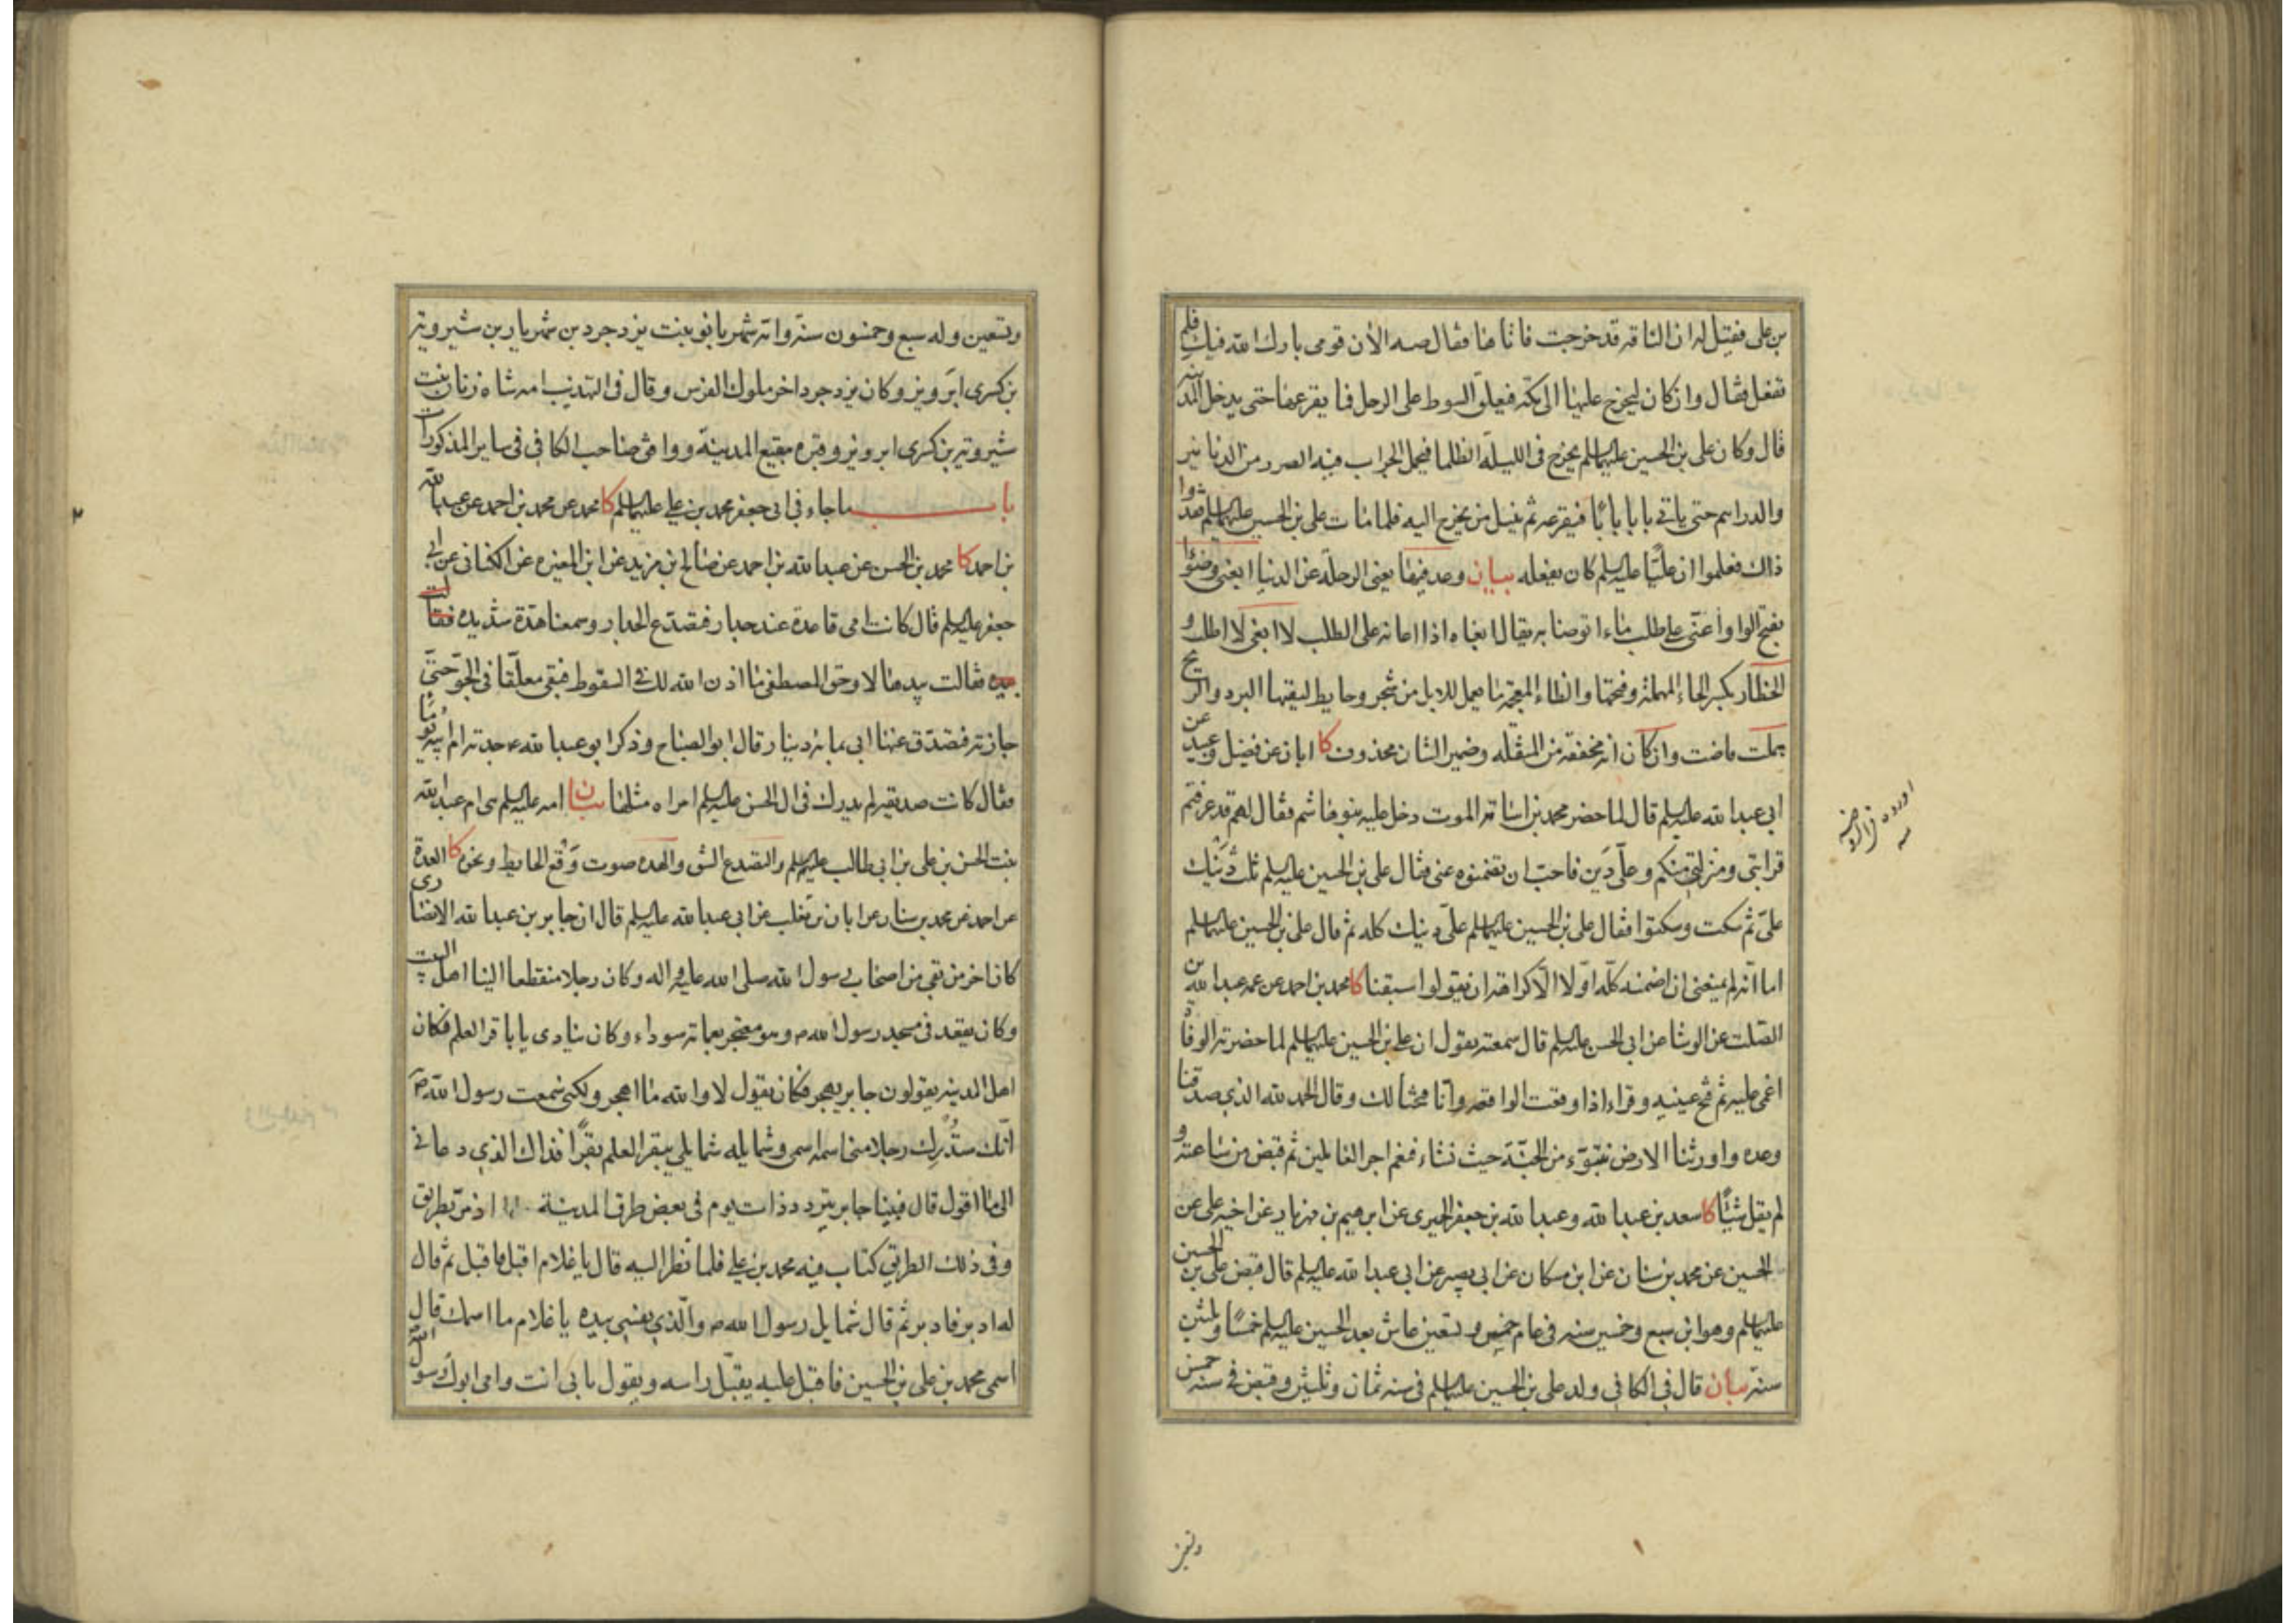 بن علی فقیل له ان الناقة قد خرجت فاتاها فقال صه الآن قومی بارك الله فیك فلم
تفعل فقال وان كان لیخرج علیها الی مكة فیعلق السوط علی الرحل فما یقرعها حتی یدخل المدینة
قال وكان علی بن الحسین علیهما السلم یخرج فی اللیلة الظلما فیحمل الجراب فیه الصرر من الدنانیر
والدراهم حتی یاتی بابا بابًا فیقرعه ثم ینیل من یخرج الیه فلما مات علی بن الحسین علیهما السلم فقدوا
ذاك فعلموا ان علیًا علیه السلم كان یفعله بیان وعد فیها یعنی الرحلة عن الدنیا ابغنی وضوءًا
بفتح الواو اعنّی علی طلب ماء اتوضا به یقال ابغاه اذا اعانه علی الطلب لا ابغی لا اطلب و
الحظار بكسر الحاء المهملة وفتحها والظاء المعجمة ما یعمل للابل من شجر وحایط لیقیها البرد والریح
هملت فاضت وان كان انه مخففة من المثقله وضمیر الشان محذوف كا ابان عن فضیل وعبید عن
ابی عبد الله علیه السلم قال لما حضر محمد بن اسامة الموت دخل علیه بنو هاشم فقال لهم قد عرفتم
قرابتی ومنزلتی منكم وعلیّ دَین فاحبّ ان تضمنوه عنی فقال علی بن الحسین علیه السلم ثلث دَینك
علیّ ثم سكت وسكتوا فقال علی بن الحسین علیهما السلم علیّ دینك كله ثم قال علی بن الحسین علیهما السلم
اما انّه لم یمنعنی ان اضمنه كلّه اوّلا الّا كراهة ان یقولوا سبقنا كا محمد بن احمد عن عمه عبد الله بن
الصّلت عن الوشا عن ابی الحسن علیه السلم قال سمعته یقول ان علی بن الحسین علیهما السلم لما حضرته الوفاة
اغمی علیه ثم فتح عینیه وقراء اذا وقعت الواقعة وانا فتحنا لك وقال الحمد لله الذی صدقنا
وعده واورثنا الارض نتبوّء من الجنّة حیث نشاء فنعم اجر العاملین ثم قبض من ساعته و
لم یقل شیئًا كا سعد بن عبد الله وعبد الله بن جعفر الحمیری عن ابرهیم بن مهزیار عن اخیه علی عن
الحسین عن محمد بن سنان عن ابن مسكان عن ابی بصیر عن ابی عبد الله علیه السلم قال قبض علی بن الحسین
علیهما السلم وهو ابن سبع وخمسین سنه فی عام خمس وتسعین عاش بعد الحسین علیه السلم خمسًا وثلثین
سنة بیان قال فی الكافی ولد علی بن الحسین علیهما السلم فی سنه ثمان وثلثین وقبض فی سنة خمس
اورده فی الروضة
وتسعین وله سبع وخمسون سنة وامّه شهربانو بنت یزدجرد بن شهریار بن شیرویه
بن كسری ابَرویز وكان یزدجرد اخر ملوك الفرس وقال فی التهذیب امه شاه زنان بنت
شیرویه بن كسری ابرویز وقبره ببقیع المدینة ووافق صاحب الكافی فی سایر المذكورات
باب ما جاء فی ابی جعفر محمد بن علی علیهما السلم كا محمد عن محمد بن احمد عن عبد الله
بن احمد كا محمد بن الحسن عن عبد الله بن احمد عن صالح بن مزید عن ابن المغیره عن الكنانی عن ابی
جعفر علیه السلم قال كانت امی قاعدة عند جدار فتصدّع الجدار وسمعنا هدّة شدیده فقالت
بیده فقالت بیدها لا وحق المصطفی ما اذن الله لك فی السقوط فبقی معلّقا فی الجوّ حتّی
جازته فتصدّق عنها ابی بمایة دینار قال ابو الصباح وذكر ابو عبد الله ع جدته ام ابیه یومًا
فقال كانت صدیقة لم یدرك فی ال الحسن علیه السلم امراه مثلها بیان امه علیه السلم هی ام عبد الله
بنت الحسن بن علی بن ابی طالب علیهم السلم والتصدع الشق والهده صوت وَقع الحایط ونحوه كا العدة
عن احمد عن محمد بن سنان عن ابان بن تغلب عن ابی عبد الله علیه السلم قال ان جابر بن عبد الله الانصاری
كان اخر من بقی من اصحاب رسول الله صلی الله علیه واله وكان رجلا منقطعا الینا اهل البیت
وكان یقعد فی مسجد رسول الله ص وهو معتجر بعمامة سوداء وكان ینادی یا باقر العلم فكان
اهل المدینه یقولون جابر یهجر فكان یقول لا والله ما اهجر ولكنی سمعت رسول الله ص
انّك ستُدرِك رجلا منی اسمه اسمی وشمایله شمایلی یبقر العلم بقرًا فذاك الذی دعانی
الی ما اقول قال فبینا جابر یتردد ذات یوم فی بعض طرق المدینة اذ مرّ بطریق
وفی ذلك الطریق كتاب فیه محمد بن علی فلما نظر الیه قال یا غلام اقبل فاقبل ثم قال
له ادبر فادبر ثم قال شمایل رسول الله ص والّذی نفسی بیده یا غلام ما اسمك قال
اسمی محمد بن علی بن الحسین فاقبل علیه یقبّل راسه ویقول بابی انت وامی ابوك رسول الله